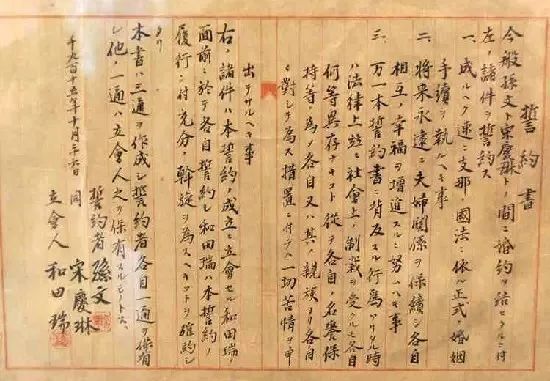 誓約書
今般孫文ト宋慶琳トノ間ニ婚約ヲ結セタルニ付
左ノ諸件ヲ誓約ス
一、成ルヘク速ニ支那ノ國法ニ依ル正式ノ婚姻
手續ヲ執ルヘキ事
二、将来永遠ニ夫婦關係ヲ保續シ各自
相互ノ幸福ヲ增進スルニ努ムヘキ事
三、万一本誓約書ニ背反スル行為アリタル時
ハ法律上並ニ社會上ノ制裁ヲ受クルモ各自
何等異存ナキコト從テ各自ノ名譽保
持等ノ為メ各自又ハ其ノ親族ヨリ各自
ニ對シテ為ス措置ニ付テハ一切苦情ヲ申
出テサルヘキ事
右ノ諸件ハ本誓約ノ成立ニ立會セル和田瑞ノ
面前ニ於テ各自誓約シ和田瑞ハ本誓約ノ
履行ニ付充分ノ斡旋ヲ為スヘキコトヲ確約シ
タリ
本書ハ三通ヲ作成シ誓約者各自一通ヲ保有
シ他ノ一通ハ立會人之ヲ保有スルモノトス
千九百十五年十月廿六日
誓約者 孫文
同 宋慶琳
立會人 和田瑞